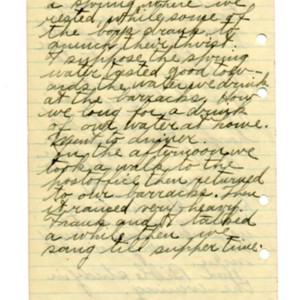 a spring where we
rested, while some of
the boys drank to
quench their thirst.
I suppose the spring
water tasted good tow-
ards the water we drink
at the barracks. How
we long for a drink
of our water at home.
to dinner.
In the afternoon we
took a walk to the
postoffice then returned
to our barracks. Then
it rained very heavy.
Frank and I talked
a while then we
sang till supper time.